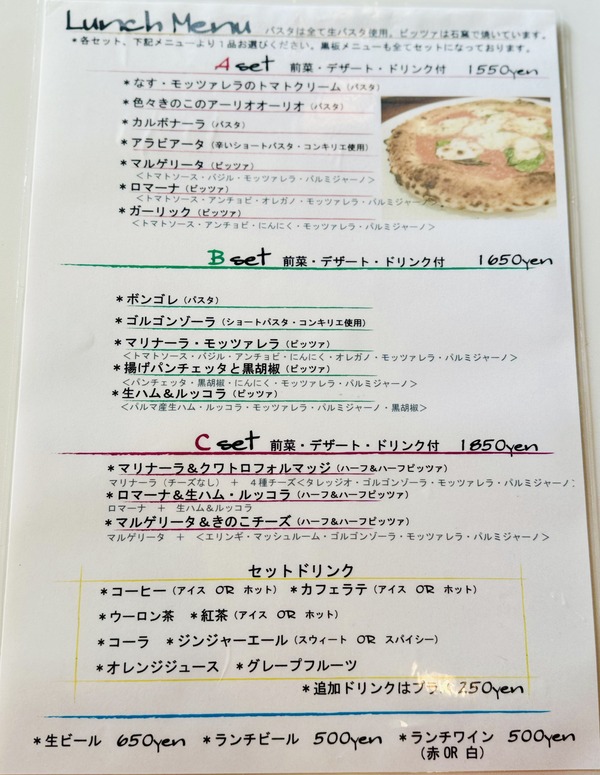 Lunch Menu パスタは全て生パスタ使用。ピッツァは石窯で焼いています。
*各セット、下記メニューより1品お選びください。黒板メニューも全てセットになっております。
A set 前菜・デザート・ドリンク付 1550yen
*なす・モッツァレラのトマトクリーム(パスタ)
*色々きのこのアーリオオーリオ(パスタ)
*カルボナーラ(パスタ)
*アラビアータ(辛いショートパスタ・コンキリエ使用)
*マルゲリータ(ピッツァ)
<トマトソース・バジル・モッツァレラ・パルミジャーノ>
*ロマーナ(ピッツァ)
<トマトソース・アンチョビ・オレガノ・モッツァレラ・パルミジャーノ>
*ガーリック(ピッツァ)
<トマトソース・アンチョビ・にんにく・モッツァレラ・パルミジャーノ>
B set 前菜・デザート・ドリンク付 1650yen
*ボンゴレ(パスタ)
*ゴルゴンゾーラ(ショートパスタ・コンキリエ使用)
*マリナーラ・モッツァレラ(ピッツァ)
<トマトソース・バジル・アンチョビ・にんにく・オレガノ・モッツァレラ・パルミジャーノ>
*揚げパンチェッタと黒胡椒(ピッツァ)
<パンチェッタ・黒胡椒・にんにく・モッツァレラ・パルミジャーノ>
*生ハム&ルッコラ(ピッツァ)
<パルマ産生ハム・ルッコラ・モッツァレラ・パルミジャーノ・黒胡椒>
C set 前菜・デザート・ドリンク付 1850yen
*マリナーラ&クワトロフォルマッジ(ハーフ&ハーフピッツァ)
マリナーラ(チーズなし) + 4種チーズ<タレッジオ・ゴルゴンゾーラ・モッツァレラ・パルミジャーノ>
*ロマーナ&生ハム・ルッコラ(ハーフ&ハーフピッツァ)
ロマーナ + 生ハム&ルッコラ
*マルゲリータ&きのこチーズ(ハーフ&ハーフピッツァ)
マルゲリータ + <エリンギ・マッシュルーム・ゴルゴンゾーラ・モッツァレラ・パルミジャーノ>
セットドリンク
*コーヒー(アイス OR ホット) *カフェラテ(アイス OR ホット)
*ウーロン茶 *紅茶(アイス OR ホット)
*コーラ *ジンジャーエール(スウィート OR スパイシー)
*オレンジジュース *グレープフルーツ
*追加ドリンクはプラス 250yen
*生ビール 650yen *ランチビール 500yen *ランチワイン 500yen
(赤 OR 白)